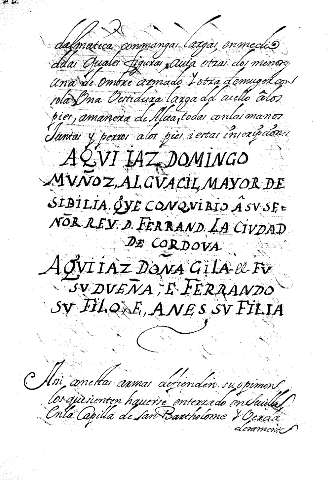 dalmatica, con mangas largas, en medio
delas Quales figuras, aula otras dos menores
una de ombre armado, y otra de muger con
sola Una Vestidura larga del cuello âlos
pies, amanera de Alua, todas con las manos
Juntas y perros alos pies, i estas inscripciones
AQUI IAZ, DOMINGO
MUÑOZ, ALGUACIL, MAYOR DE
SIBILIA. QUE CONQUIRIO A SU SE-
ÑOR REY. D. FERRAND. LA CIUDAD
DE CORDOVA
AQUI IAZ DOÑA GILA el FU
SU DUEÑA, E FERRANDO
SU FILO, E, ANES SU FILIA
Asi, con estas armas defienden su opinion
los que sienten hauerse enterrado en Seuilla
Enla Capilla de San Bartholome